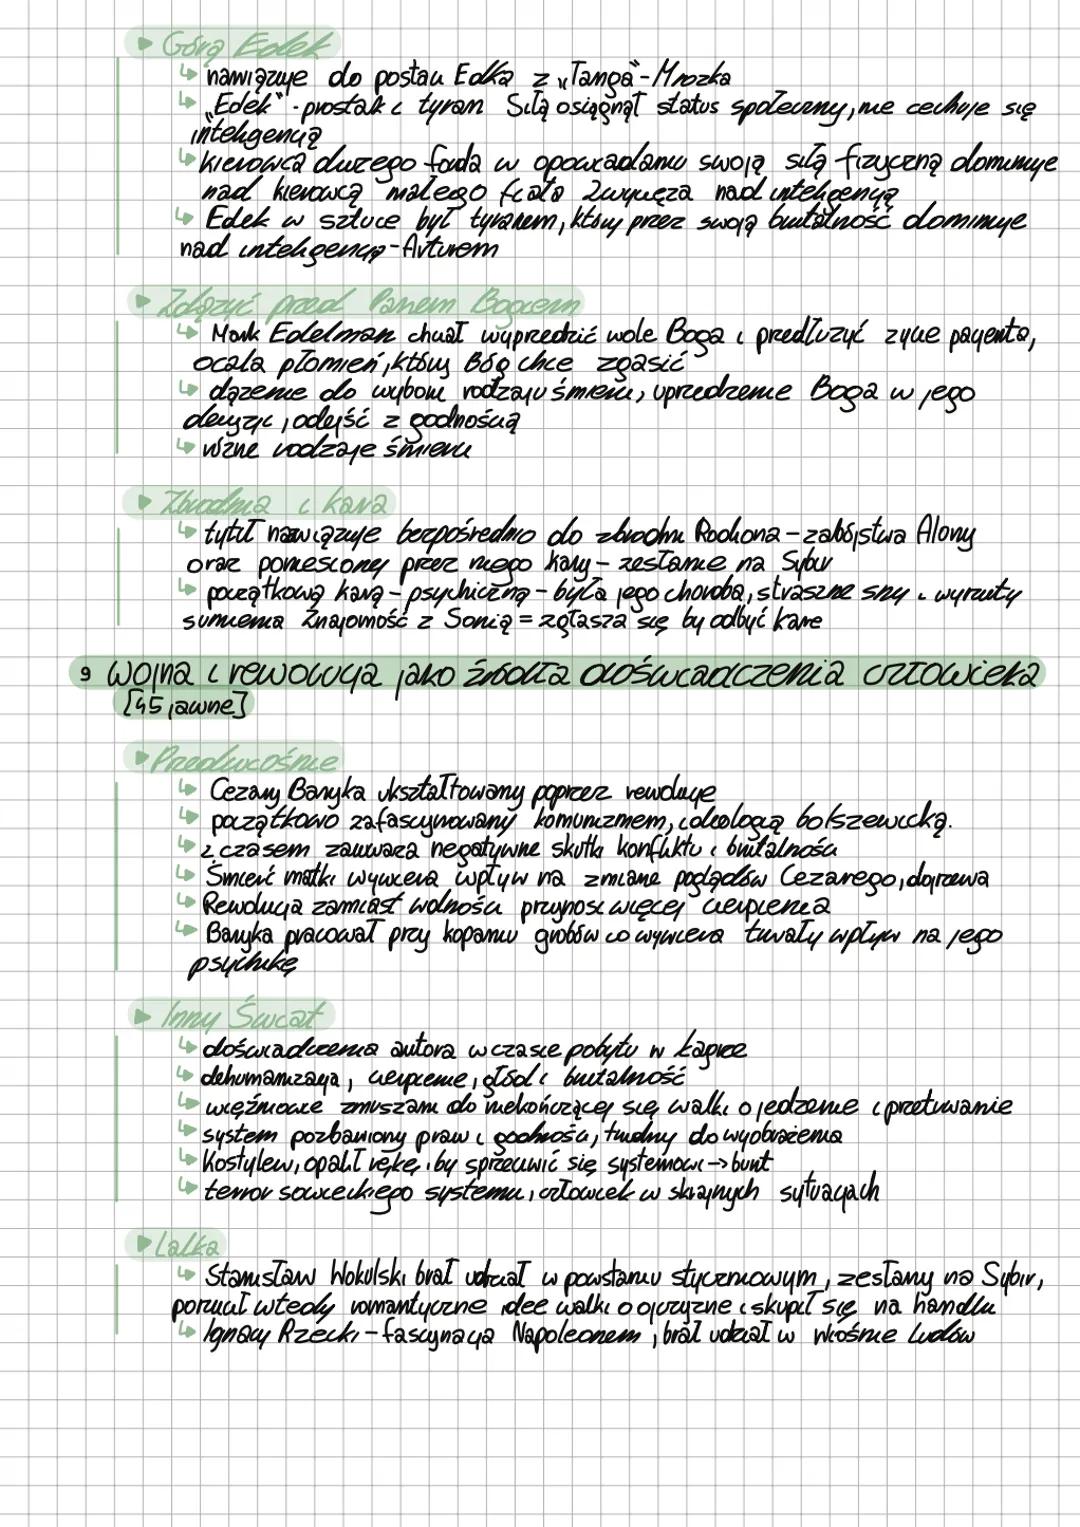 ▸ Górą Edek
↳ nawiązuje do postaci Edka z „Tanga”-Mrożka
↳ „Edek” - prostak i tyran Siłą osiągnął status społeczny, nie cechuje się
inteligencją
↳ kierowca dużego forda w opowiadaniu swoją siłą fizyczną dominuje
nad kierowcą małego fiata Zwycięża nad inteligencją
↳ Edek w sztuce był tyranem, który przez swoją brutalność dominuje
nad inteligencją - Arturem
▸ Zdążyć przed Panem Bogiem
↳ Marek Edelman chciał wyprzedzić wole Boga i przedłużyć życie pacjenta,
ocala płomień, który Bóg chce zgasić
↳ dążenie do wyboru rodzaju śmierci, uprzedzenie Boga w jego
decyzji, odejść z godnością
↳ różne rodzaje śmierci
▸ Zbrodnia i kara
↳ tytuł nawiązuje bezpośrednio do zbrodni Rodiona – zabójstwa Alony
oraz poniesionej przez niego kary – zesłanie na Sybir
↳ początkową karą – psychiczną – była jego choroba, straszne sny i wyrzuty
sumienia Znajomość z Sonią = zgłasza się by odbyć kare
9 Wojna i rewolucja jako źródła doświadczenia człowieka
[45 jawne]
▸ Przedwiośnie
↳ Cezary Baryka ukształtowany poprzez rewolucje
↳ początkowo zafascynowany komunizmem, ideologią bolszewicką.
↳ z czasem zauważa negatywne skutki konfliktu i brutalności
↳ Śmierć matki wywiera wpływ na zmiane poglądów Cezarego, dojrzewa
↳ Rewolucja zamiast wolności przynosi więcej cierpienia
↳ Baryka pracował przy kopaniu grobów co wywiera trwały wpływ na jego
psychikę
▸ Inny Świat
↳ doświadczenia autora w czasie pobytu w łagrze
↳ dehumanizacja, cierpienie, głód i brutalność
↳ więźniowie zmuszani do niekończącej się walki o jedzenie i przetrwanie
↳ system pozbawiony praw i godności, trudny do wyobrażenia
↳ Kostylew, opalił rękę, by sprzeciwić się systemowi → bunt
↳ terror sowieckiego systemu, człowiek w skrajnych sytuacjach
▸ Lalka
↳ Stanisław Wokulski brał udział w powstaniu styczniowym, zesłany na Sybir,
porzucił wtedy romantyczne idee walki o ojczyznę i skupił się na handlu
↳ Ignacy Rzecki – fascynacja Napoleonem, brał udział w Wiośnie Ludów